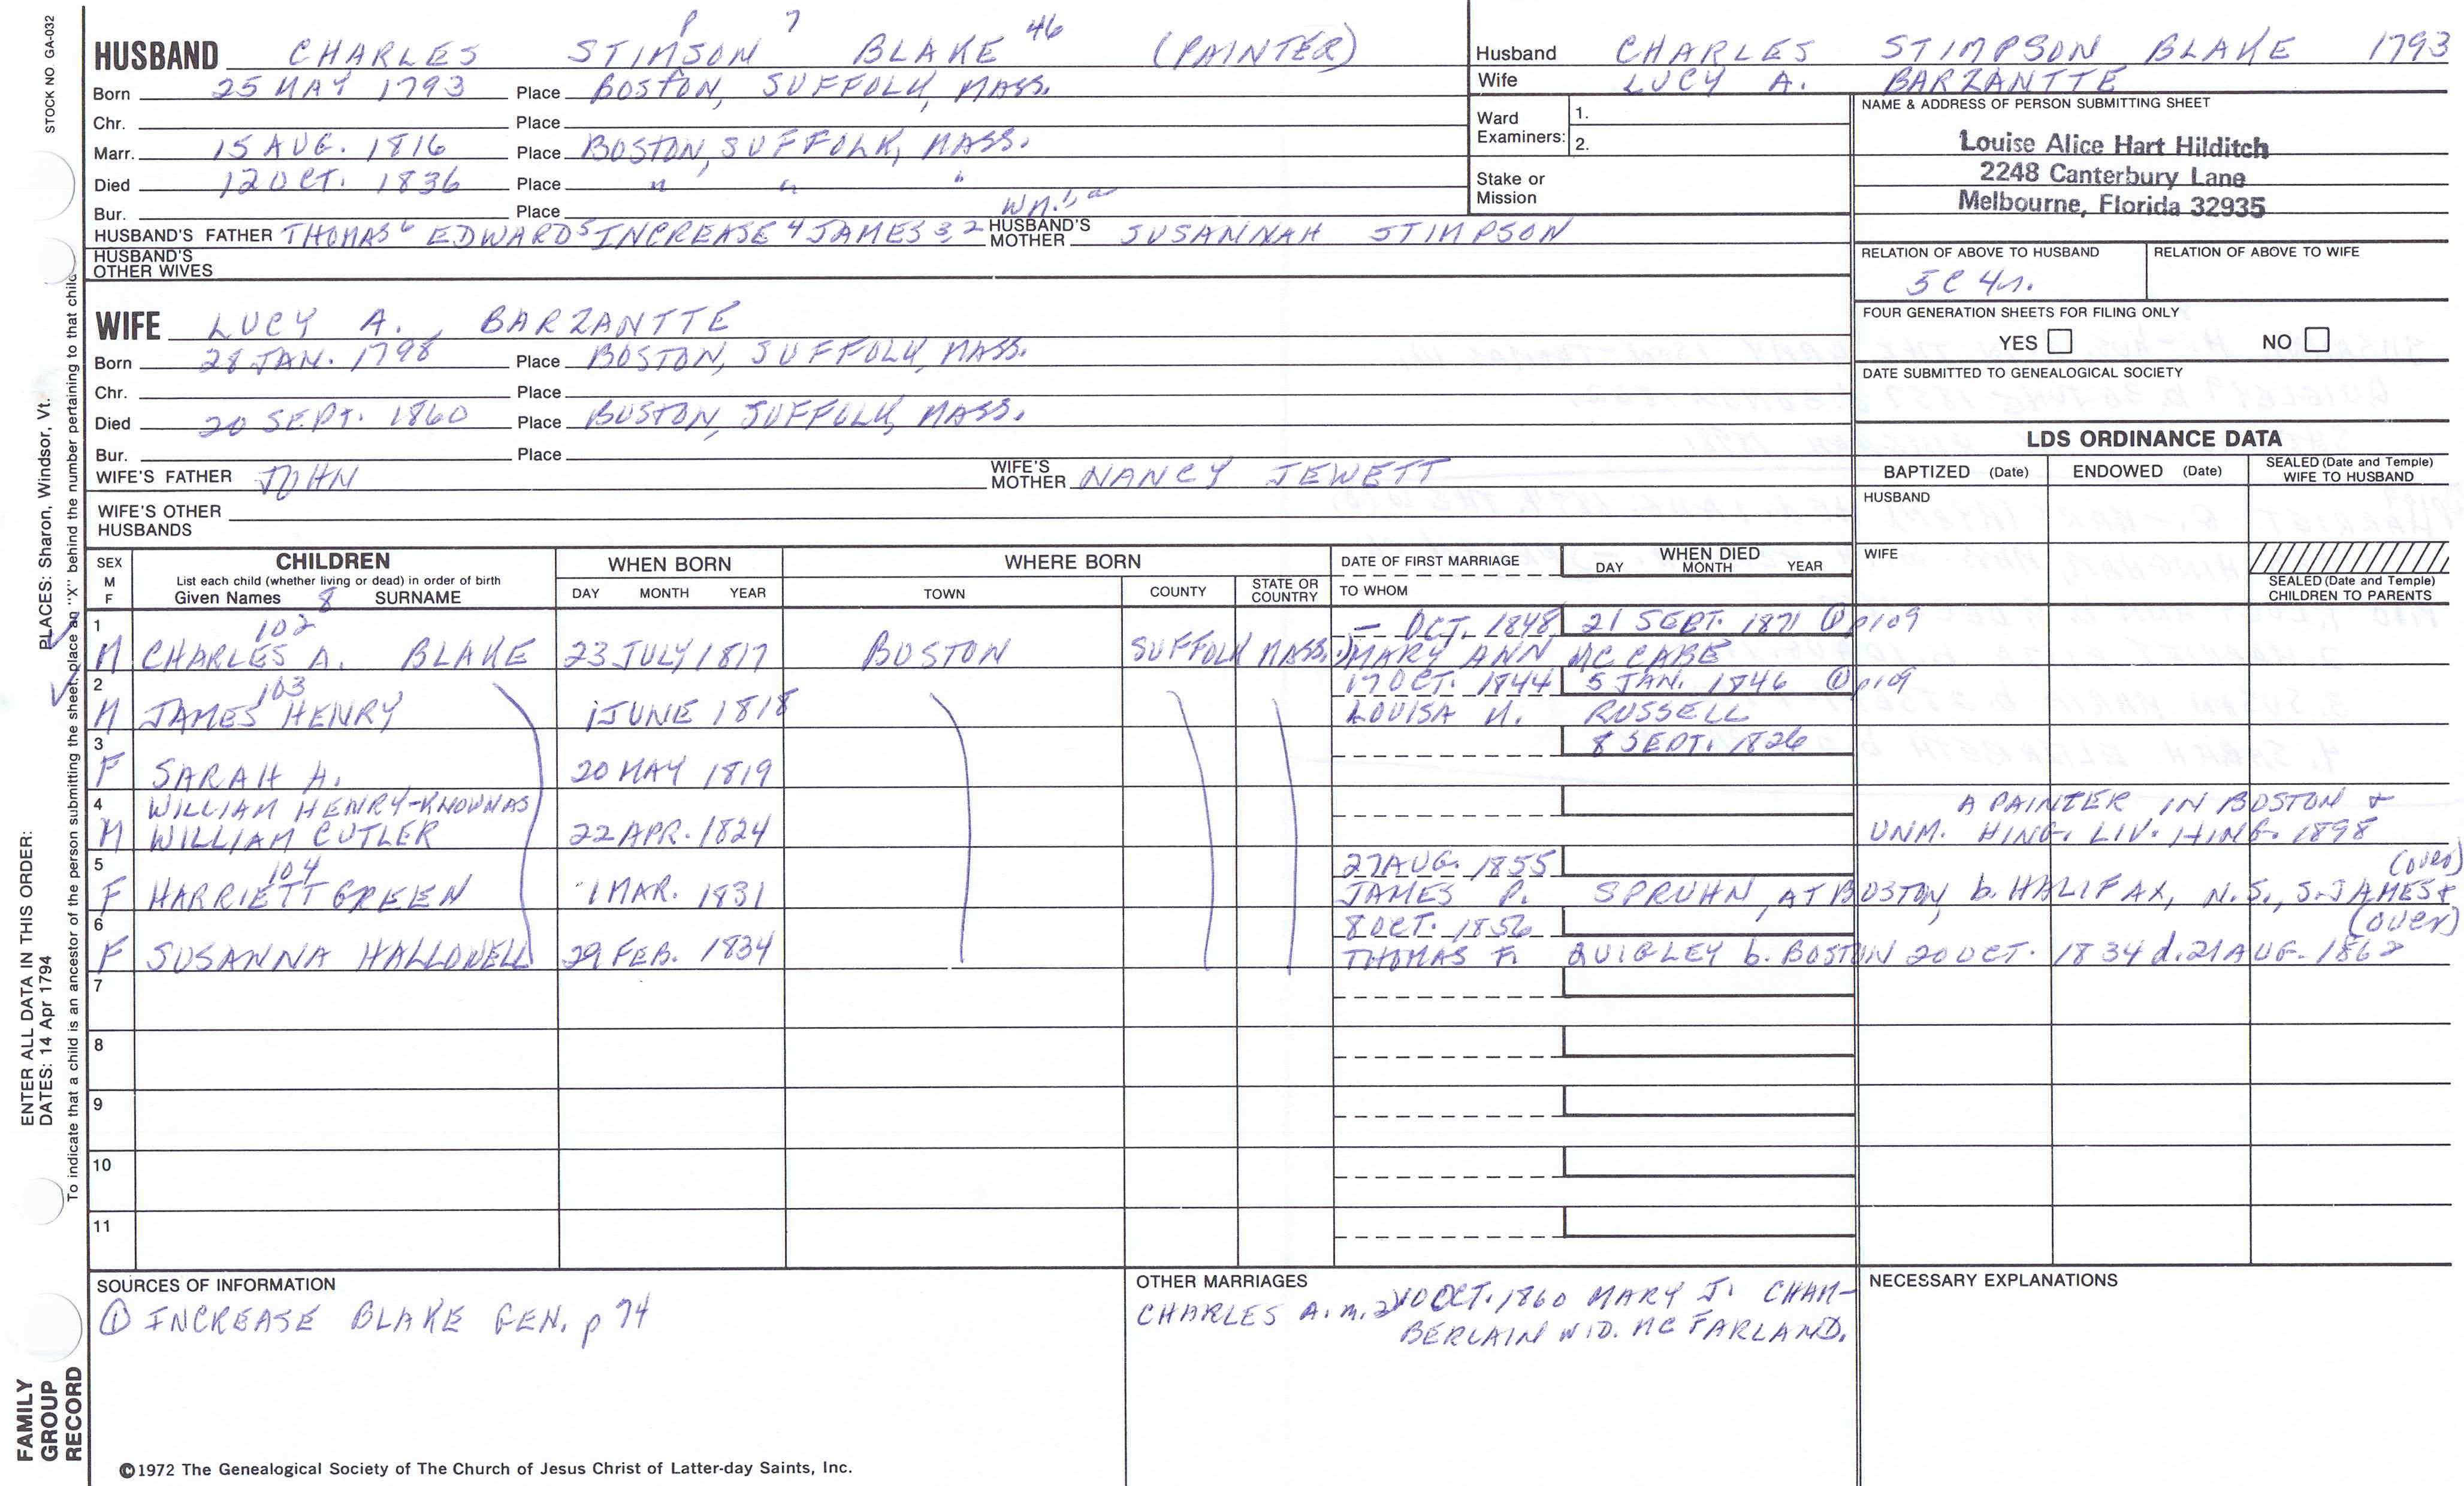 STOCK NO GA-032
PLACES: Sharon, Windsor, Vt.
ENTER ALL DATA IN THIS ORDER:
DATES: 14 Apr 1794
To indicate that a child is an ancestor of the person submitting the sheet, place an "X" behind the number pertaining to that child.
FAMILY
GROUP
RECORD
P 7 46
HUSBAND CHARLES STIMSON BLAKE (PAINTER)
Born 25 MAY 1793 Place BOSTON, SUFFOLK, MASS.
Chr. Place
Marr. 15 AUG. 1816 Place BOSTON, SUFFOLK, MASS.
Died 12 OCT. 1836 Place " " "
Bur. Place
WM.
HUSBAND'S FATHER THOMAS6 EDWARD5 INCREASE4 JAMES3,2 HUSBAND'S MOTHER SUSANNAH STIMPSON
HUSBAND'S OTHER WIVES
Husband CHARLES STIMPSON BLAKE 1793
Wife LUCY A. BARZANTTE
Ward Examiners: 1.
2.
Stake or Mission
NAME & ADDRESS OF PERSON SUBMITTING SHEET
Louise Alice Hart Hilditch
2248 Canterbury Lane
Melbourne, Florida 32935
RELATION OF ABOVE TO HUSBAND RELATION OF ABOVE TO WIFE
5C 4r.
FOUR GENERATION SHEETS FOR FILING ONLY
YES NO
DATE SUBMITTED TO GENEALOGICAL SOCIETY
WIFE LUCY A. BARZANTTE
Born 28 JAN. 1798 Place BOSTON, SUFFOLK, MASS.
Chr. Place
Died 20 SEPT. 1860 Place BOSTON, SUFFOLK, MASS.
Bur. Place
WIFE'S FATHER JOHN WIFE'S MOTHER NANCY JEWETT
WIFE'S OTHER HUSBANDS
LDS ORDINANCE DATA
BAPTIZED (Date) ENDOWED (Date) SEALED (Date and Temple) WIFE TO HUSBAND
HUSBAND
WIFE
SEALED (Date and Temple) CHILDREN TO PARENTS
SEX M F CHILDREN WHEN BORN WHERE BORN DATE OF FIRST MARRIAGE WHEN DIED
List each child (whether living or dead) in order of birth
Given Names 8 SURNAME DAY MONTH YEAR TOWN COUNTY STATE OR COUNTRY TO WHOM DAY MONTH YEAR
1 102 — OCT. 1848 21 SEPT. 1871 ① p109
M CHARLES A. BLAKE 23 JULY 1817 BOSTON SUFFOLK MASS. MARY ANN MC CABE
2 103 17 OCT. 1844 5 JAN. 1846 ① p109
M JAMES HENRY 1 JUNE 1818 LOUISA N. RUSSELL
3 8 SEPT. 1826
F SARAH A. 20 MAY 1819
4 WILLIAM HENRY-KNOWN AS A PAINTER IN BOSTON +
M WILLIAM CUTLER 22 APR. 1824 UNM. HING. LIV. HING. 1898
5 104 27 AUG. 1855 (OVER)
F HARRIETT GREEN 1 MAR. 1831 JAMES P. SPRUHN, AT BOSTON, b. HALIFAX, N.S., S. JAMES +
6 8 OCT. 1856 (OVER)
F SUSANNA HALLOWELL 29 FEB. 1834 THOMAS F. QUIGLEY b. BOSTON 20 OCT. 1834 d. 21 AUG. 1862
7
8
9
10
11
SOURCES OF INFORMATION
① INCREASE BLAKE GEN. p 74
OTHER MARRIAGES
CHARLES A. m. 2 10 OCT. 1860 MARY J. CHAM-
BERLAIN WID. MC FARLAND.
NECESSARY EXPLANATIONS
©1972 The Genealogical Society of The Church of Jesus Christ of Latter-day Saints, Inc.